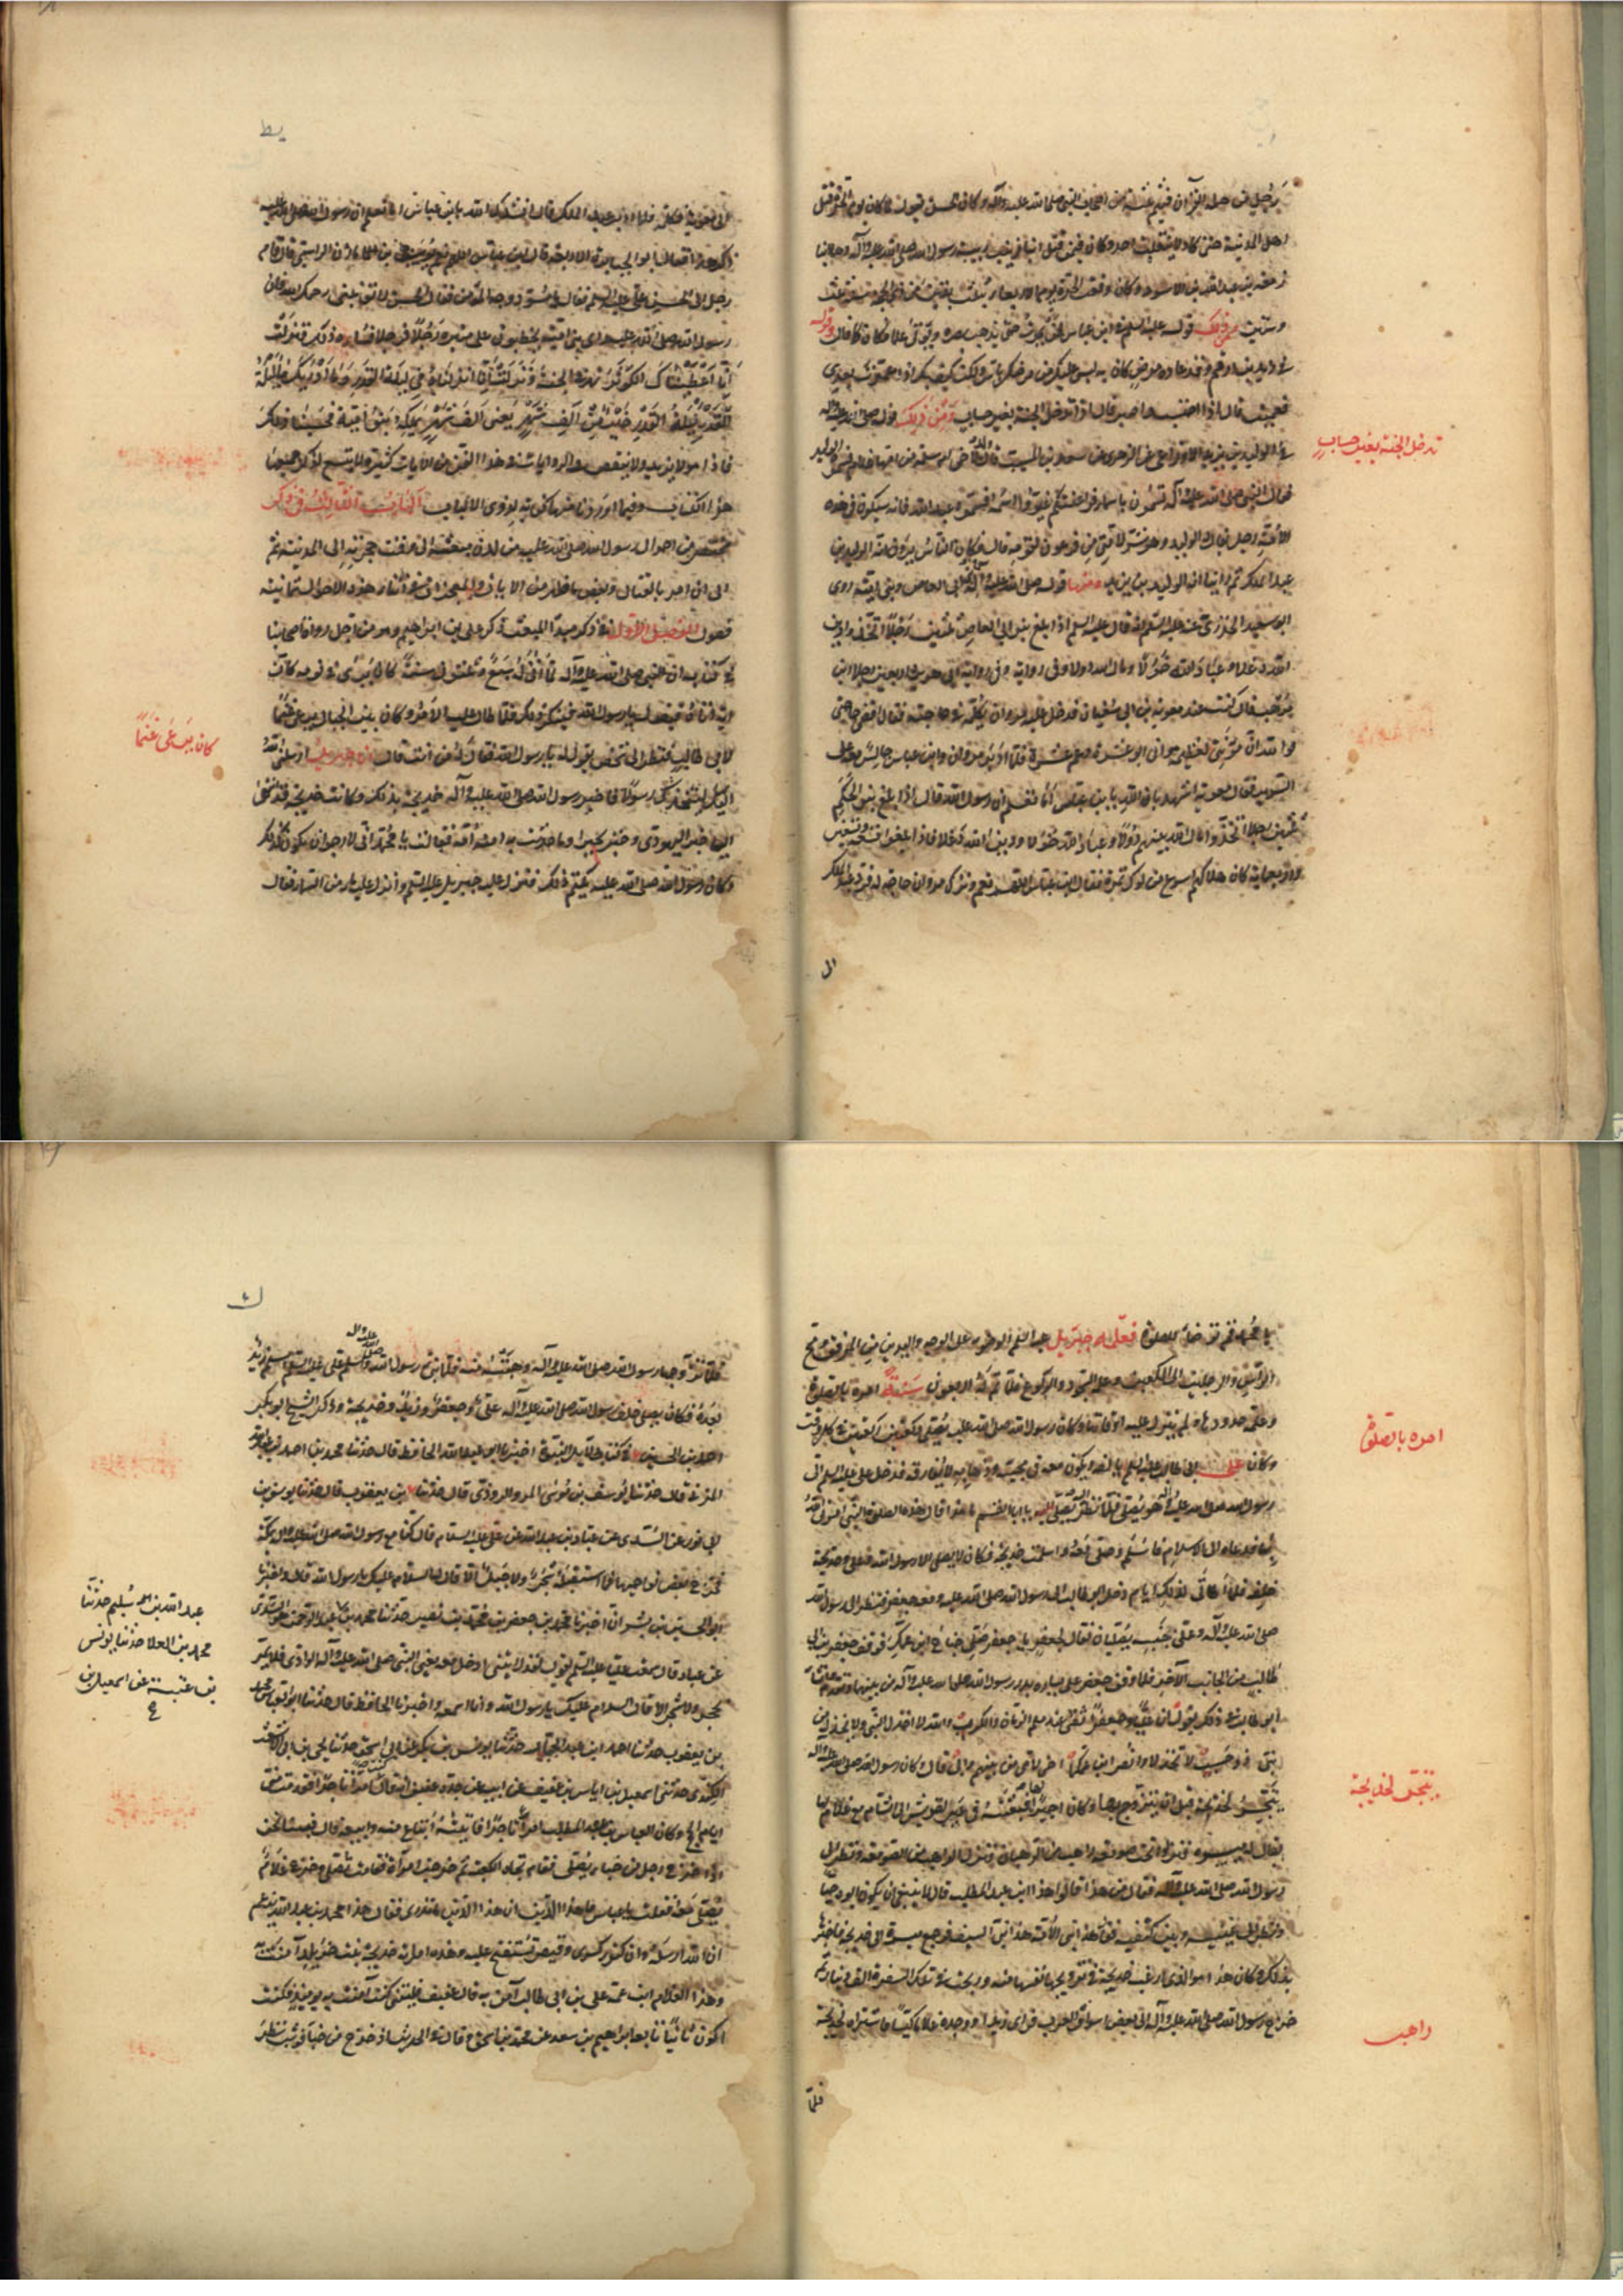 رجل من حملة القرآن فيهم ثلثة من اصحاب النبي صلى الله عليه وآله وكان الحسن يقول لما كان يوم الحرة قتل
اهل المدينة حتى كاد لا ينفلت احد وكان فيمن قتل ابنا زينب ربيبة رسول الله صلى الله عليه وآله وهما ابنا
زمعة بن عبد الله بن الاسود وكان وقعت الحرة يوم الاربعا
وستين ومن ذلك قوله عليه السلم في ابن عباس لن يموت حتى يذهب بصره ويؤتى علما فكان كما قال وقوله
في زيد بن ارقم وقد عاده من مرض كان به ليس عليك من مرضك باس ولكن كيف بك اذا عمرت بعدي
فعميت قال اذا احتسب واصبر قال اذا تدخل الجنة بغير حساب ومن ذلك قوله صلى الله عليه وآله
في الوليد بن يزيد الاوزاعي عن الزهري عن سعيد بن المسيب قال
فقال النبي صلى الله عليه وآله تسمون باسماء فراعنتكم غيروا اسمه فسموه عبد الله فانه سيكون في هذه
الامة رجل يقال له الوليد وهو شر لامتي من فرعون لقومه قال فكان الناس يرون انه الوليد بن
عبد الملك ثم راينا انه الوليد بن يزيد ومنها قوله صلى الله عليه وآله في بني ابي العاص وبني امية روى
ابو سعيد الخدري عنه عليه السلم انه قال عليه السلم اذا بلغ بنو ابي العاص ثلثين رجلا اتخذوا دين
الله دغلا وعباد الله خولا ومال الله دولا وفي رواية وفي رواية ابي هريرة اربعين رجلا ابن
موهب قال كنت عند معوية بن ابي سفيان فدخل عليه مروان يكلمه في حاجته فقال اقض حاجتي
فوالله ان مؤنتي لعظيمة واني ابو عشرة وعم عشرة فلما ادبر مروان وابن عباس جالس معه على
السرير فقال معوية اشهد بالله يا بن عباس اما تعلم ان رسول الله قال اذا بلغ بنو الحكم
ثلثين رجلا اتخذوا مال الله بينهم دولا وعباد الله خولا ودين الله دغلا فاذا بلغوا تسعة وتسعين
واربعماية كان هلاكهم اسرع من لوك تمرة فقال ابن عباس اللهم نعم وترك مروان حاجة له فرد عبد الملك
الى
تدخل الجنة بغير حساب
يط
الى معوية فكلمه فلما ادبر عبد الملك قال انشدك الله يا بن عباس اما تعلم ان رسول الله صلى الله عليه
ذكر هذا فقال ابو الجبابرة الاربعة قال ابن عباس اللهم نعم يوسف بن مازن الراسبي قال قام
رجل الى الحسن بن علي عليه السلم فقال يا مسود وجه المؤمن فقال الحسن لا تؤنبني رحمك الله فان
رسول الله صلى الله عليه راى بني امية يخطبون على منبره رجلا فرجلا فساءه ذلك فنزلت
انا اعطيناك الكوثر نهر في الجنة ونزلت انا انزلناه في ليلة القدر وما ادريك ما ليلة
القدر ليلة القدر خير من الف شهر يعنى الف شهر يملكه بنو امية فحسبنا ذلك
فاذا هو لا يزيد ولا ينقص والروايات في هذا الفن من الآيات كثيرة لا يتسع لذكر جميعها
هذا الكتاب وفيما اوردناه منها كفاية لذوى الالباب الباب الثالث في ذكر
مختصر من احوال رسول الله صلى الله عليه من لدن مبعثه الى وقت هجرته الى المدينة ثم
الى ان امر بالقتال وبعض ما ظهر من الايات والمعجزات في اثناء هذه الاحوال ثمانية
فصول الفصل الاول في ذكر مبدا المبعث ذكر علي بن ابراهيم وهو من اجل رواة اصحابنا
في كتابه ان النبي صلى الله عليه وآله لما اتى له سبع وثلثون سنة كان يرى في نومه كان
آتيا اتاه فيقول يا رسول الله فينكر ذلك فلما طال عليه الامر وكان بين الجبال يرعى غنما
لابي طالب فنظر الى شخص يقول له يا رسول الله فقال له من انت قال انا جبرئيل ارسلني الله
اليك ليتخذك رسولا فاخبر رسول الله صلى الله عليه وآله خديجة بذلك وكانت خديجة قد انتهى
اليها خبر اليهودي وخبر بحيرا وما حدثت به آمنة امه فقالت يا محمد اني لارجو ان يكون كذلك
وكان رسول الله صلى الله عليه يكتم ذلك فنزل عليه جبرئيل عليه السلم وانزل عليه ماء من السماء فقال
كان يرعى غنما
يا محمد قم توضأ للصلوة فعلمه جبرئيل عليه السلم الوضوء على الوجه واليدين من المرفق ومسح
الراس والرجلين الى الكعبين وعلمه السجود والركوع فلما تم له اربعون سنة امره بالصلوة
وعلمه حدودها ولم ينزل عليه اوقاتها وكان رسول الله صلى الله عليه يصلي ركعتين ركعتين في كل وقت
وكان علي بن ابي طالب عليه السلم يالفه ويكون معه في مجيئه وذهابه لا يفارقه فدخل علي عليه السلم الى
رسول الله صلى الله عليه وآله وهو يصلي فلما نظر اليه يصلي قال يا ابا القسم ما هذا قال هذه الصلوة التي امرني الله
بها فدعاه الى الاسلام فاسلم وصلى معه واسلمت خديجة فكان لا يصلي الا رسول الله وعلي وخديجة
خلفه فلما اتى لذلك ايام دخل ابو طالب الى رسول الله صلى الله عليه ومعه جعفر فنظر الى رسول الله
صلى الله عليه وآله وعلي بجنبه يصليان فقال لجعفر يا جعفر صل جناح ابن عمك فوقف جعفر بن ابي
طالب من الجانب الآخر فلما وقف جعفر على يساره بدر رسول الله صلى الله عليه وآله من بينهما وتقدم
ابو طالب في ذلك يقول ان عليا وجعفرا ثقتي عند ملم الزمان والكرب والله لا اخذل النبي ولا يخذله من
بني ذو حسب لا تخذلا وانصرا ابن عمكما اخي لامي من بينهم وابي قال وكان رسول الله صلى الله عليه وآله
يتجر لخديجة قبل ان يتزوج بها وكان اجيرا لها فبعثته في عير لقريش الى الشام مع غلام لها
يقال له ميسرة فنزلوا تحت صومعة راهب من الرهبان فنزل الراهب من الصومعة ونظر الى
رسول الله صلى الله عليه وآله فقال من هذا قالوا هذا ابن عبد المطلب قال لا ينبغي ان يكون ابوه حيا
ونظر الى عينيه وبين كتفيه فقال هذا نبي الامة هذا نبي السيف فرجع ميسرة الى خديجة فاخبرها
بذلك وكان هذا هو الذي ارغب خديجة في تزويجها نفسها منه وربحت في تلك السفرة الف دينار ثم
خرج رسول الله صلى الله عليه وآله الى بعض اسواق العرب فراى زيدا ووجده غلاما كيسا فاشتراه لخديجة
فلما
امره بالصلوة
يتجر لخديجة
راهب
ك
فلما تزوجها رسول الله صلى الله عليه وآله وهبته منه فلما نبئ رسول الله صلى الله عليه وآله اسلم علي عليه السلم ثم اسلم زيد
بعده فكان يصلي خلف رسول الله صلى الله عليه وآله علي وجعفر وزيد وخديجة وذكر الشيخ ابو بكر
احمد بن الحسين في كتاب دلايل النبوة اخبرنا ابو عبد الله الحافظ قال حدثنا محمد بن احمد بن عبد الله
المزني قال حدثنا يوسف بن موسى المروالروذي قال حدثنا بن يعقوب قال حدثنا يونس بن
ابي ثور عن السدي عن عباد بن عبد الله عن علي عليه السلام قال كنا مع رسول الله صلى الله عليه وآله بمكة
فخرج في بعض نواحيها فما استقبله شجر ولا جبل الا قال له السلام عليك يا رسول الله قال واخبرنا
ابو الحسين بن بشران اخبرنا محمد بن جعفر بن محمد بن نصير حدثنا محمد بن
عن عباد قال سمعت عليا عليه السلم يقول لقد رايتني ادخل معه يعني النبي صلى الله عليه وآله الوادي فلا يمر
بحجر ولا شجر الا قال السلام عليك يا رسول الله وانا اسمعه واخبرنا الحافظ قال حدثنا ابو العباس محمد
بن يعقوب حدثنا احمد ابن عبد الجبار حدثنا يونس بن بكير عن ابن اسحق حدثنا يحيى بن ابي الاشعث
الكندي حدثني اسمعيل بن اياس بن عفيف عن ابيه عن جده عفيف انه قال كنت امرا تاجرا فقدمت منى
ايام الحج وكان العباس بن عبد المطلب امرا تاجرا فاتيته ابتاع منه وابيعه قال فبينا نحن
اذ خرج رجل من خباء يصلي فقام تجاه الكعبة ثم خرجت امراة فقامت تصلي وخرج غلام
يصلي معه فقلت يا عباس ما هذا الدين ان هذا الدين ما ندري فقال هذا محمد بن عبد الله يزعم
ان الله ارسله وان كنوز كسرى وقيصر تستفتح عليه وهذه امراته خديجة بنت خويلد آمنت به
وهذا الغلام ابن عمه علي بن ابي طالب آمن به قال عفيف فليتني كنت آمنت به يومئذ فكنت
اكون ثانيا تابعه ابراهيم بن سعد عن محمد بن اسحق وقال في الحديث اذ خرج من خباء قريب فنظر
عبد الله بن مسلم حدثنا
محمد بن العلا حدثنا يونس
بن عنبسة عن اسمعيل بن